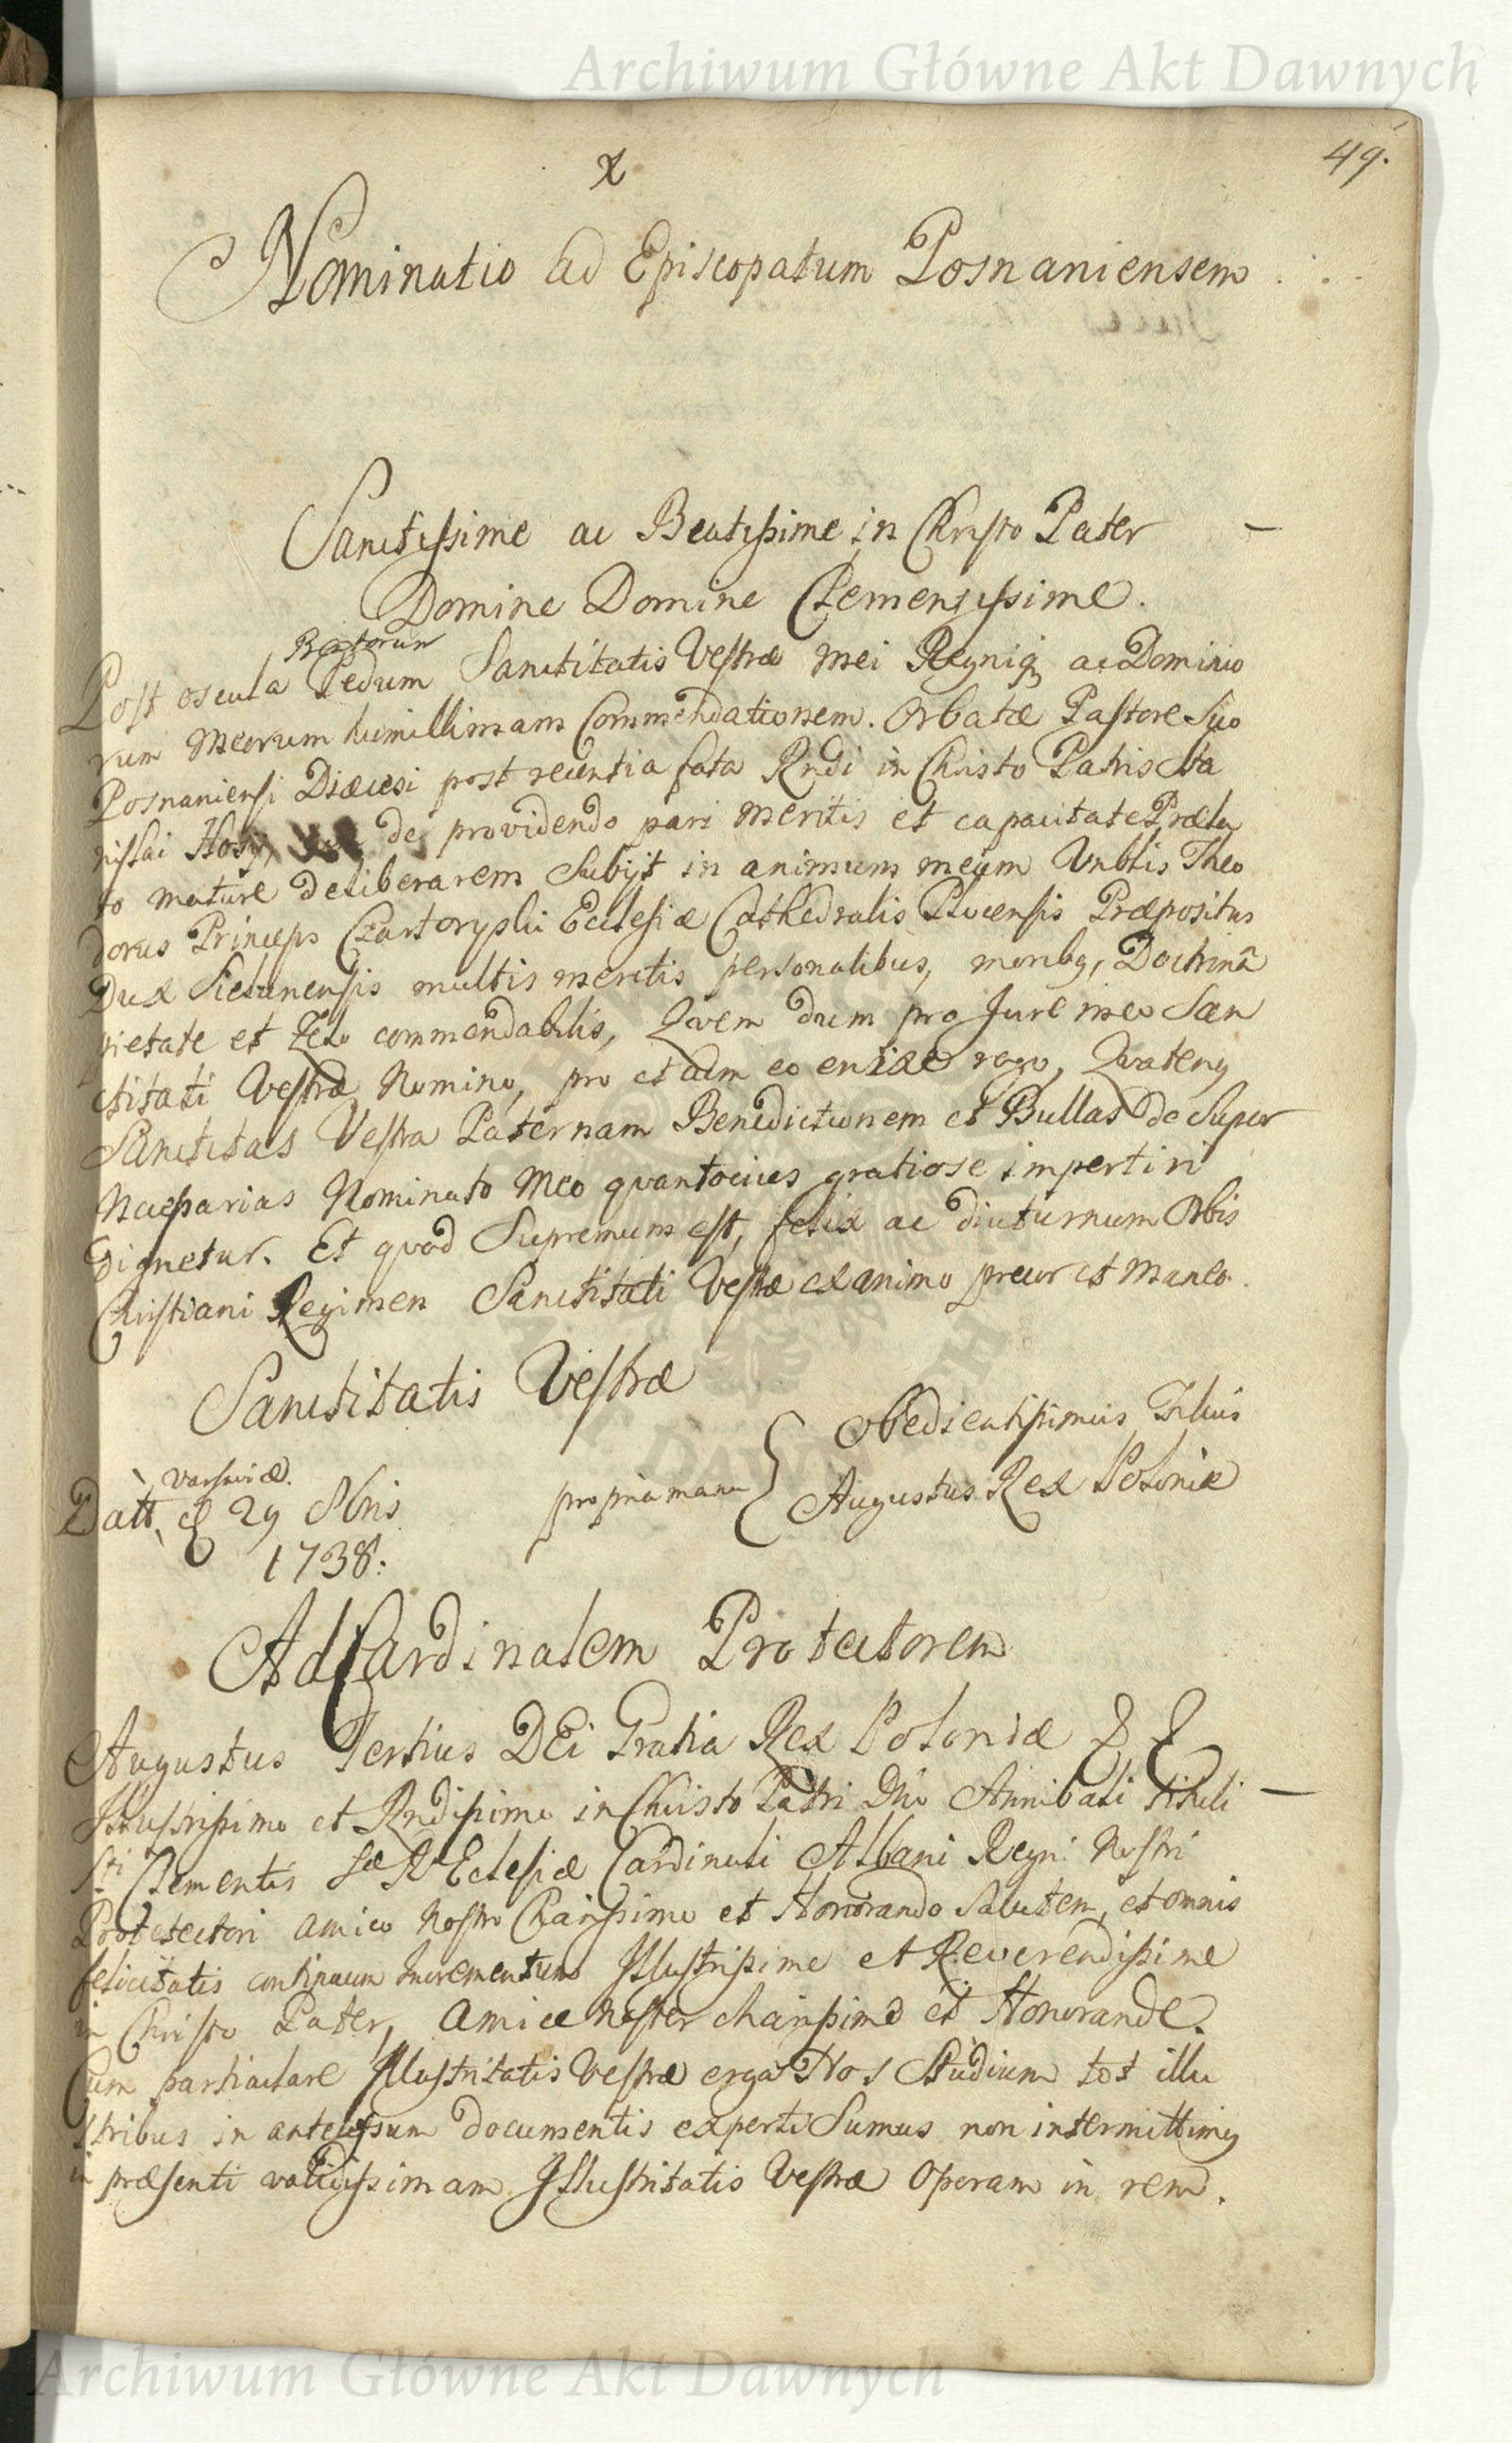 Archiwum Główne Akt Dawnych
49.
x
Nominatio ad Episcopatum Posnaniensem
Sanctissime ac Beatissime in Christo Pater
Domine Domine Clementissime.
Beatorum
Post oscula Pedum Sanctitatis Vestræ mei Regniq ac Dominio
rum Meorum humillimam Commendationem. Orbatæ Pastore Suo
Posnaniensi Diæcesi post recentia fata Rndi in Christo Patris Sta
nislai Hosij, de providendo pari meritis et capacitate Præla
to mature deliberarem Subijt in animum meum Vnblis Theo
dorus Princeps Czartoryski Ecclesiæ Cathedralis Plocensis Præpositus
Dux Sielunensis multis meritis personalibus, moribq, Doctrinâ
pietate et Zelo commendabilis, Qvem dum pro Jure meo San
ctitati Vestræ Nomino, pro et adm eo enixe rogo, Qvatenq
Sanctitas Vestra Paternam Benedictionem et Bullas de Super
Necessarias Nominato Meo qvantocius gratiose impertiri
Dignetur. Et qvod Supremum est, felix ac diuturnum Orbis
Christiani Regimen Sanctitati Vestræ ex animo precor et maneo.
Sanctitatis Vestræ
Obedientissimus Filius
Varsaviæ.
Datt, d 29 Nbris propria manu Augustus Rex Poloniæ
1738.
Ad Cardinalem Protectorem
Augustus Tertius DEi Gratia Rex Poloniæ & &
Illustrissimo et Rndissimo in Christo Patri Dno Annibali tituli
Sti Clementis Sæ R Eclesiæ Cardinali Albani Regni Nostri
Protetectori amico Nostro Charissimo et Honorando Salutem, et omnis
felicitatis continuum Incrementum Illustrissime et Reverendissime
in Christo Pater, amice Noster charissime et Honorande.
Cum particulare Illustritatis Vestræ erga Nos Studium tot illu
stribus in antecessum documentis experti Sumus non intermittimq
in præsenti validissimam Illustritatis Vestræ Operam in rem.
Archiwum Główne Akt Dawnych